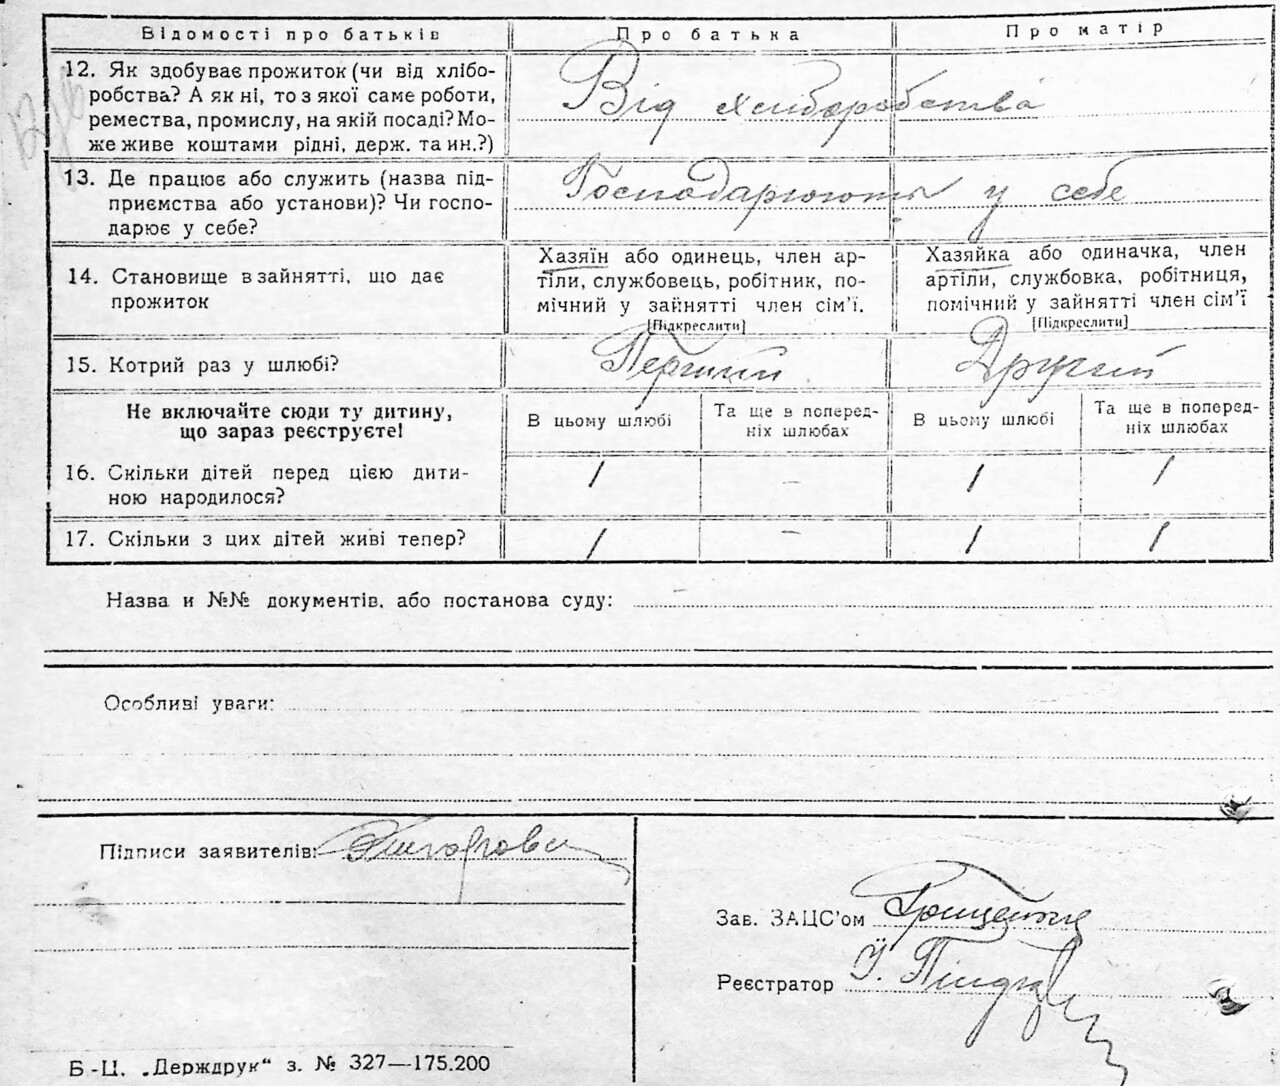 Відомості про батьків Про батька Про матір
12. Як здобуває прожиток (чи від хлібо-
робства? А як ні, то з якої саме роботи,
ремества, промислу, на якій посаді? Мо-
же живе коштами рідні, держ. та ин.?)
Від хліборобства
13. Де працює або служить (назва під-
приємства або установи)? Чи госпо-
дарює у себе?
Господарюють у себе
14. Становище в зайнятті, що дає
прожиток
Хазяїн або одинець, член ар-
тіли, службовець, робітник, по-
мічний у зайнятті член сім’ї.
[Підкреслити]
Хазяйка або одиначка, член
артіли, службовка, робітниця,
помічний у зайнятті член сім’ї
[Підкреслити]
15. Котрий раз у шлюбі? Перший Другий
Не включайте сюди ту дитину,
що зараз реєструєте!
В цьому шлюбі
Та ще в поперед-
ніх шлюбах
В цьому шлюбі
Та ще в поперед-
ніх шлюбах
16. Скільки дітей перед цією дити-
ною народилося?
1 – 1 1
17. Скільки з цих дітей живі тепер? 1 – 1 1
Назва и №№ документів, або постанова суду:
Особливі уваги:
Підписи заявителів:
Зав. ЗАЦС’ом Грищенко
Реєстратор
Б-Ц. „Держдрук“ з. № 327—175.200